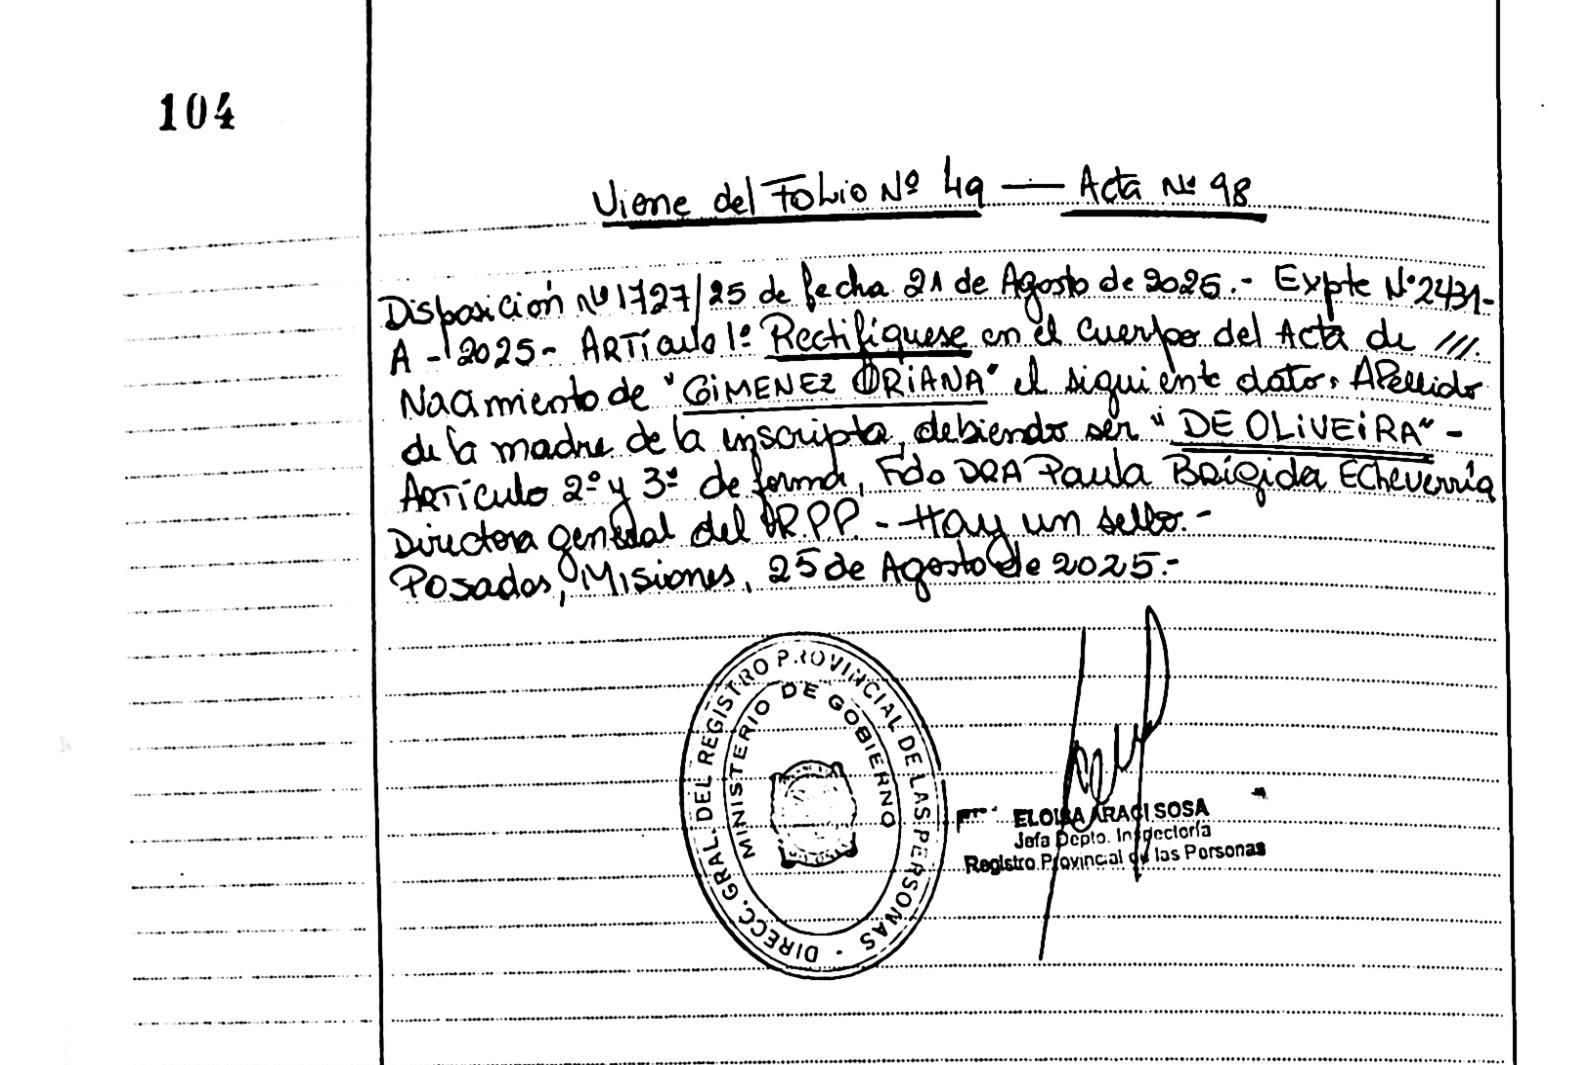 104
Viene del Folio Nº 49 — Acta Nº 98
Disposición Nº 1727/25 de fecha 21 de Agosto de 2025.- Expte Nº 2431-
A - 2025 - Artículo 1º Rectifíquese en el cuerpo del Acta de ///.
Nacimiento de "GIMENEZ ORIANA" el siguiente dato, Apellido
de la madre de la inscripta, debiendo ser "DE OLIVEIRA" -
Artículo 2º y 3º de forma, Fdo DRA Paula Brígida Echeverría
Directora general del R.P.P. - Hay un sello.-
Posadas, Misiones, 25 de Agosto de 2025.-
DIRECC. GRAL. DEL REGISTRO PROVINCIAL DE LAS PERSONAS -
MINISTERIO DE GOBIERNO
ELOISA ARACI SOSA
Jefa Depto. Inspectoría
Registro Provincial de las Personas